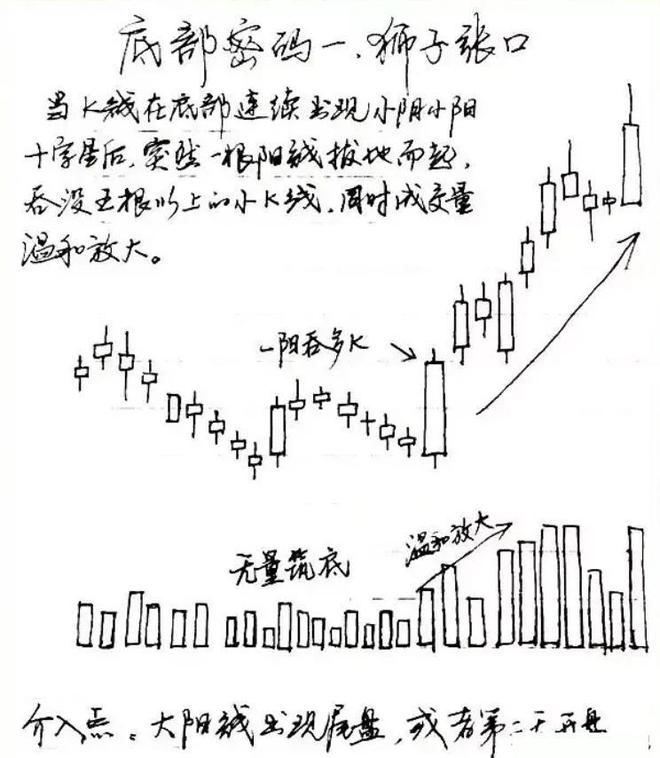 底部密码一.狮子张口
当K线在底部连续出现小阴小阳
十字星后,突然一根阳线拔地而起,
吞没五根以上的小K线,同时成交量
温和放大。
一阳吞多K
温和放大
无量筑底
介入点:大阳线出现尾盘,或者第二天开盘